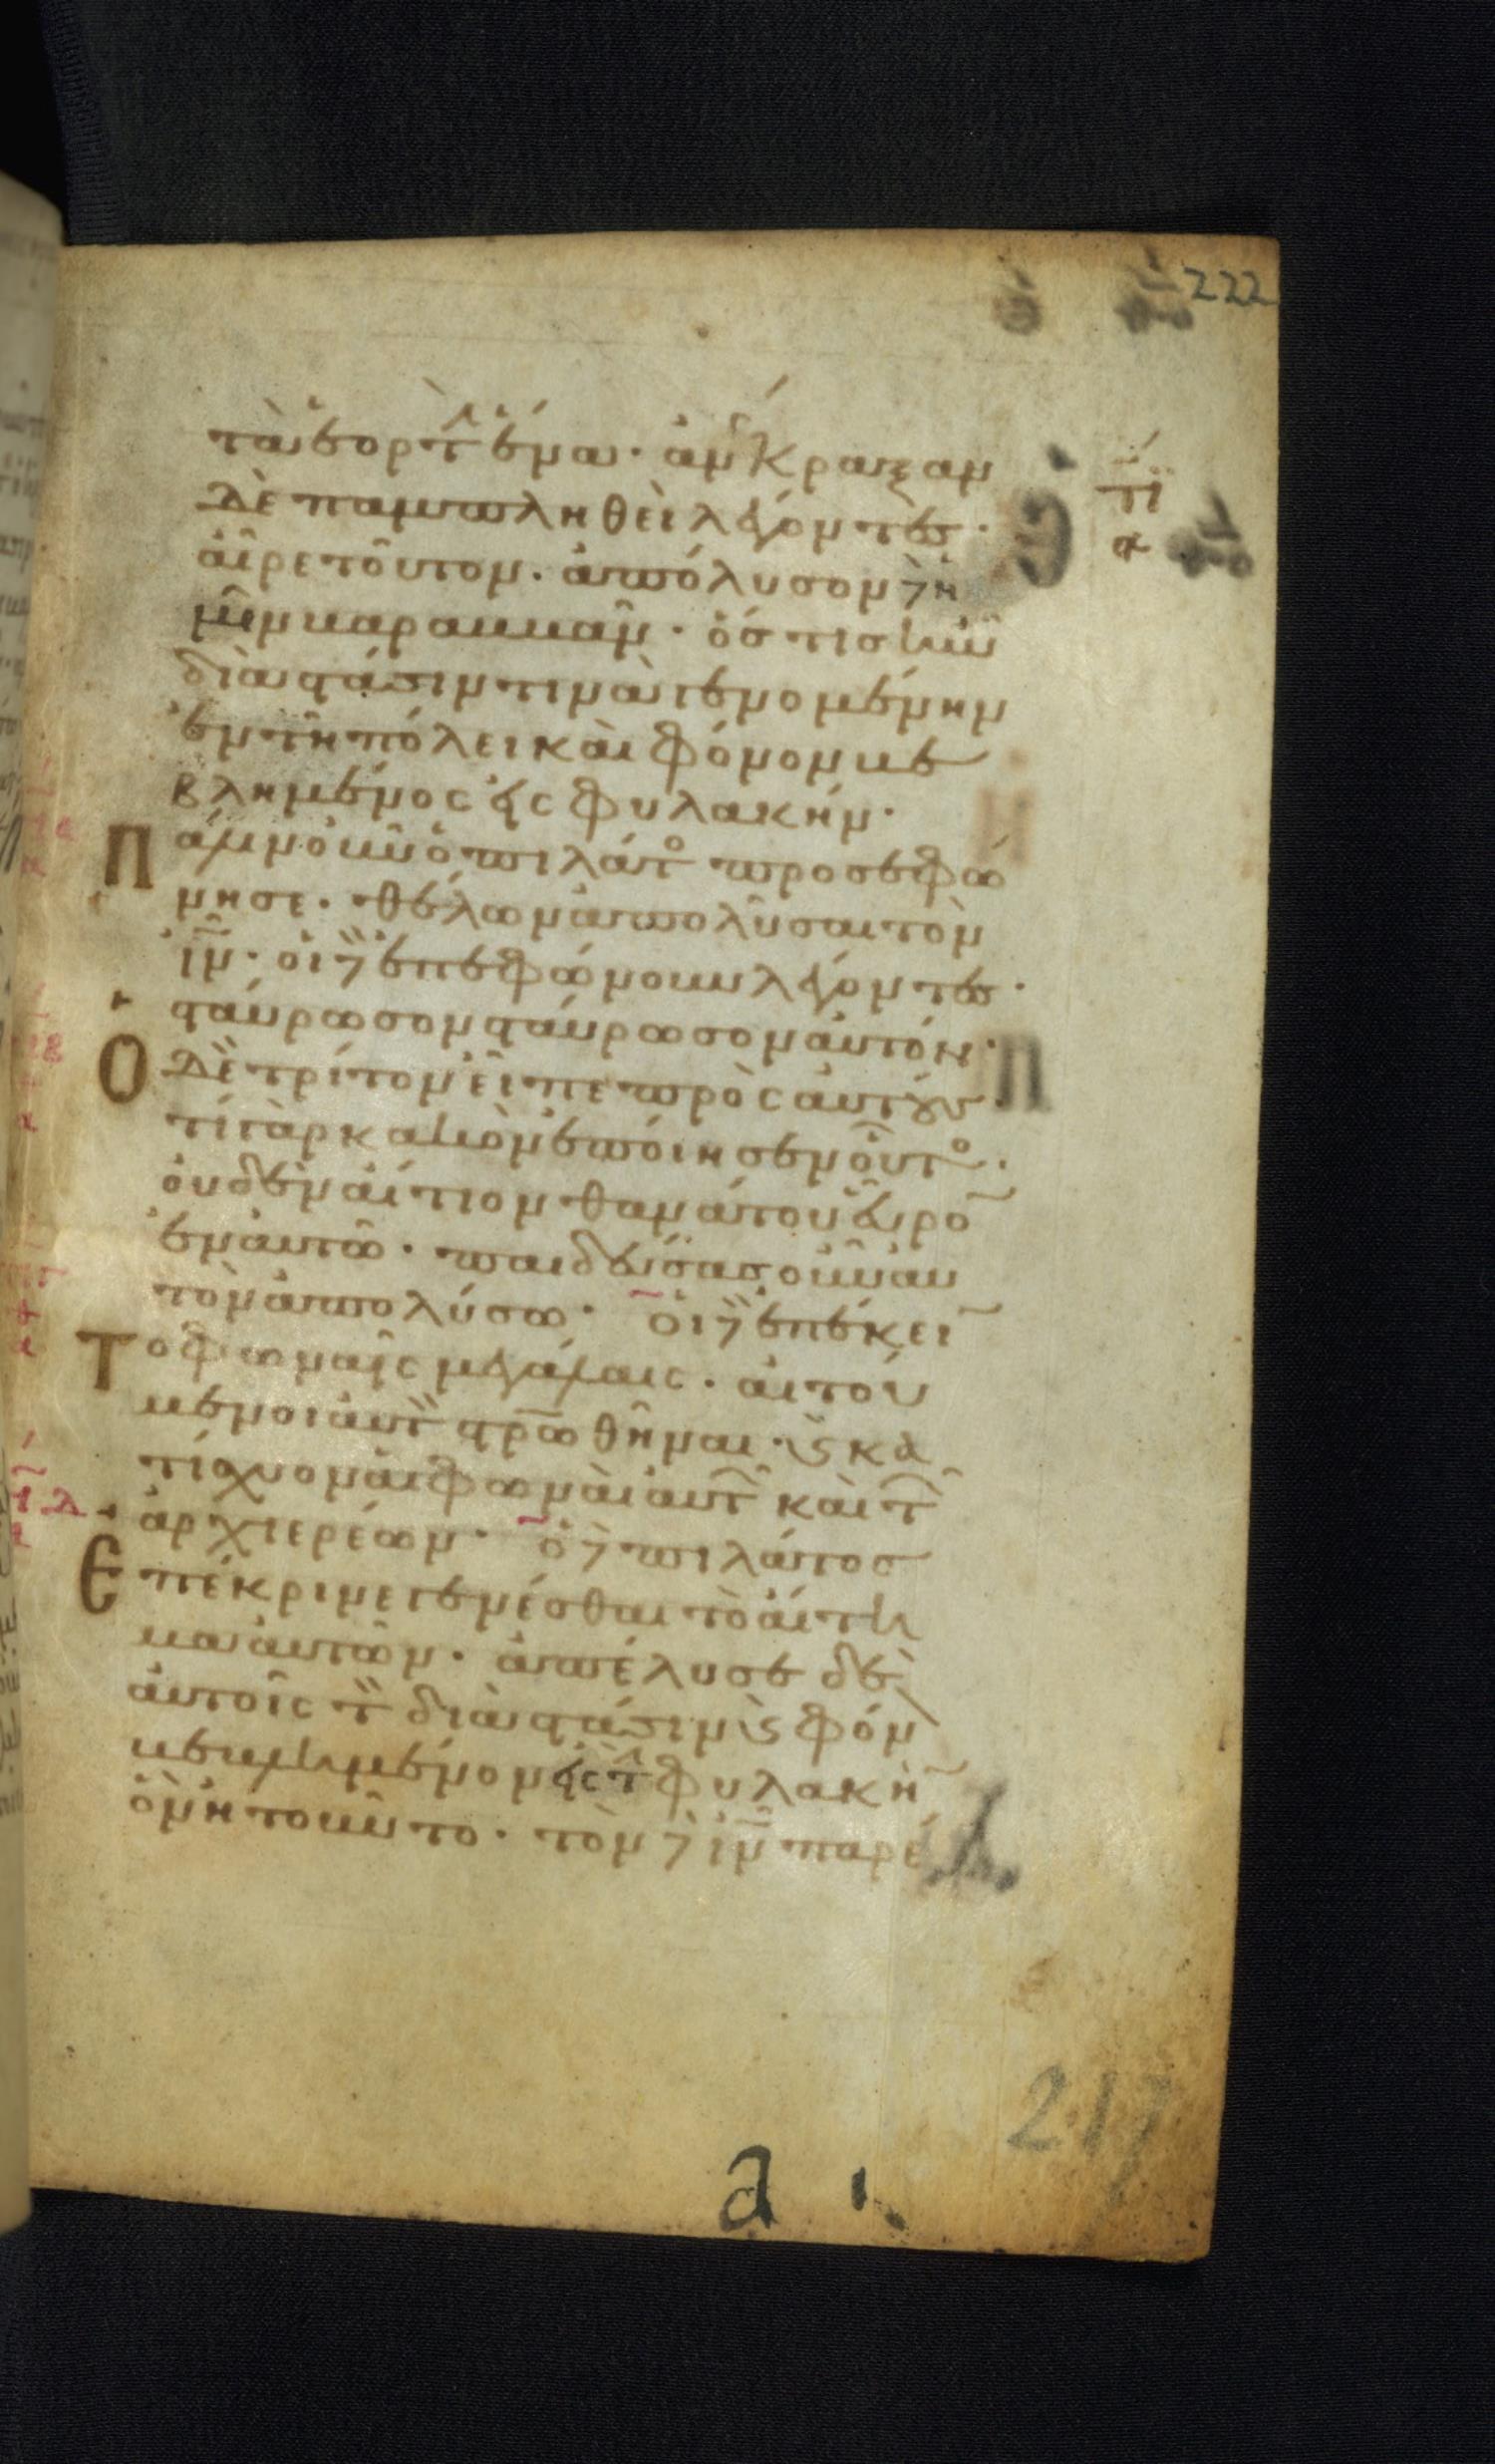 222
τὰ ἑορτ(ὴν) ἕνα· ἀνέκραξαν
τι
α
δὲ παμπληθεὶ λέγοντες·
αἶρε τοῦτον· ἀπόλυσον δὲ ἡ
μῖν βαραββᾶν· ὅστις ἦν
διὰ στάσιν τινὰ γενομένην
ἐν τῇ πόλει καὶ φόνον βε
βλημένος εἰς φυλακήν·
Πάλιν οὖν ὁ πιλάτος προσεφώ
νησε· θέλων ἀπολῦσαι τὸν
ἰν· οἱ δὲ ἐπεφώνουν λέγοντες·
σταύρωσον σταύρωσον αὐτόν·
Ὁ δὲ τρίτον εἶπε πρὸς αὐτούς·
τί γὰρ κακὸν ἐποίησεν οὗτος·
οὐδὲν αἴτιον θανάτου εὗρον
ἐν αὐτῷ· παιδεύσας οὖν αὐ
τὸν ἀπολύσω· οἱ δὲ ἐπέκειν
Το φωναῖς μεγάλαις· αἰτού
μενοι αὐτὸν στρωθῆναι· καὶ κα
τίσχυον αἱ φωναὶ αὐτῶν καὶ τῶν
ἀρχιερέων· ὁ δὲ πιλάτος
Ἐπέκρινε γενέσθαι τὸ αἴτη
μα αὐτῶν· ἀπέλυσε δὲ
αὐτοῖς τὸν διὰ στάσιν καὶ φόν
βεβλημένον εἰς τὴν φυλακὴν
ὃν ᾐτοῦντο· τὸν δὲ ἰν παρέ
217